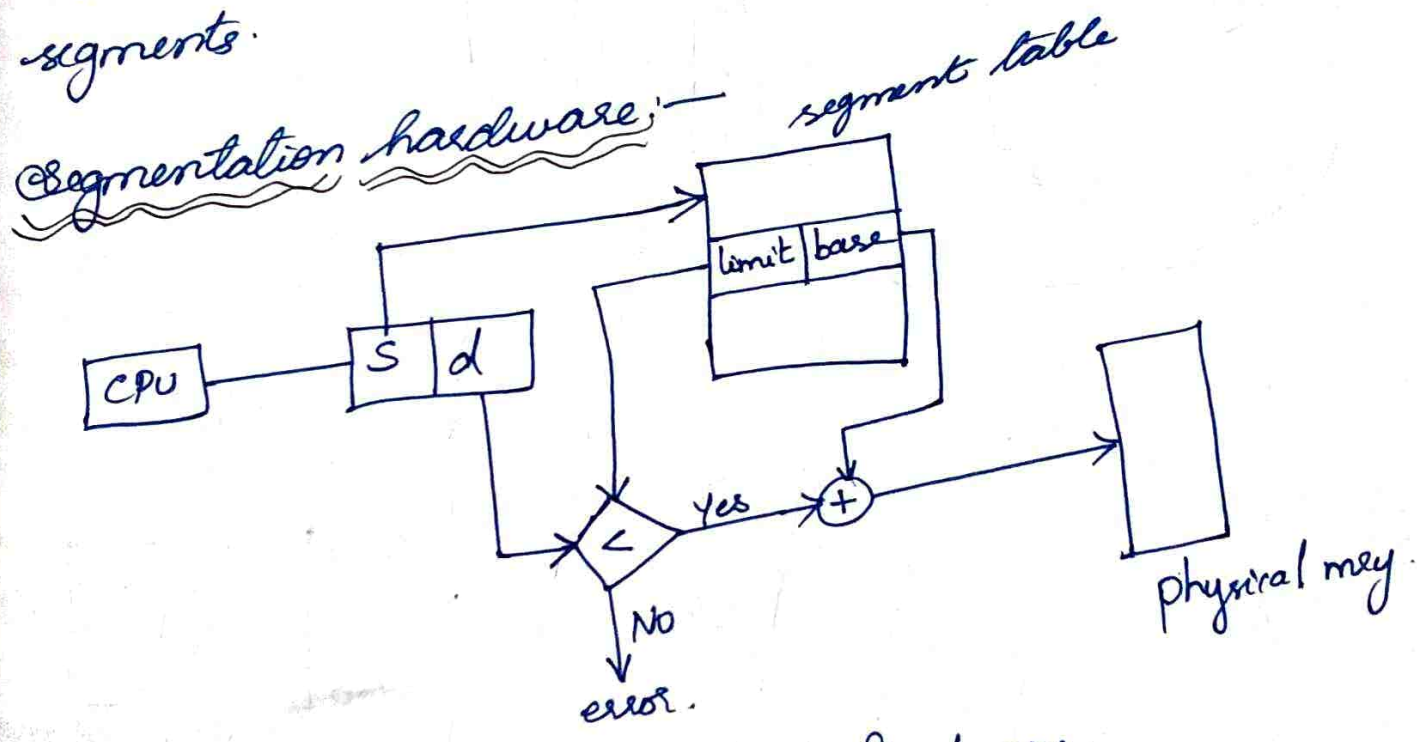 segments.
Segmentation hardware:-
segment table
limit base
S d
CPU
<
Yes
+
No
error.
physical mry.